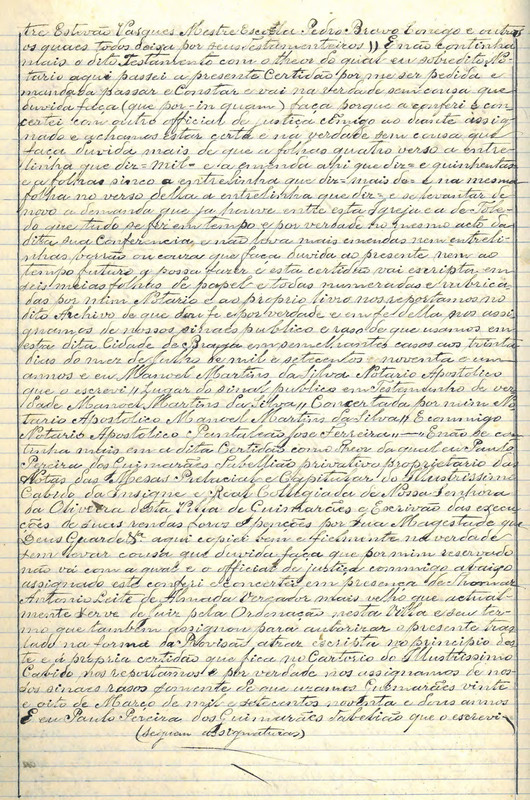 tre Estevão Vasques Mestre Escolla Pedro Bravo Conego e outros
os quaes todos deixa por seus testamenteiros)) E não continha
mais o dito Testamento com o theor do qual eu sobredito No-
tario aqui passei a presente Certidão por me ser pedida e
mandada passar e Constar e vai na verdade sem cousa que
duvida faça (que por-in quam) faça porque a conferi e con
certei com outro official de justiça comigo ao diante assig
nado e achamos estar certa e na verdade sem cousa que
faça duvida mais de que a folhas quatro verso a entre-
linha que diz= mil= e a emenda ahi que diz= e quinhentas
e a folhas sinco a entrelinha que diz= mais do= e na mesma
folha no verso della a entrelinha que diz= e se levantar de
novo a demanda que ja houve entre esta Igreja e a de Tole-
do que tudo se fez em tempo e por verdade no mesmo acto da
dita sua Conferencia, e não leva mais emendas nem entreli-
nhas, borrão ou coura que faça duvida ao presente nem ao
tempo futuro q possa fazer e esta certidão vai escripta em
seis meias folhas de papel e todas numeradas e rubrica
das por mim Notario e ao proprio livro nos reportamos no
dito Archivo de que dou fe e por verdade e em fe della, nos assi
gnamos de nossos sinaes publico e raso de que usamos em
esta dita Cidade de Braga em semelhantes casos aos trinta
dias do mez de Julho de mil e setecentos e noventa e um
annos e eu Manoel Martins da Silva Notario Apostolico
que o escrevi)) Lugar do sinal publico em Testemunho de ver
dade Manoel Martins da Silva)) Concertada por mim No
tario Apostolico Manoel Martins da Silva)) E commigo
Notario Apostolico Pantaleão Jose Ferreira)) — E não se con
tinha mais em a dita Certidão com o theor da qual eu Paulo
Pereira dos Guimarães Tabellião privativo Proprietario das
Notas das Mesas Palacial e Capitular do Illustrissimo
Cabido da Insigne e Real Collegiada de Nossa Senhora
da Oliveira desta Villa de Guimarães e Escrivão das execu
ções de suas rendas Foros e penções por sua Magestade que
Deus Guarde &a aqui copiei bem e fielmente na verdade
sem levar cousa que duvida faça que por mim reservado
não vai com a qual e o official de justiça commigo abaixo
assignado este conferi e concertei em presença de Thomaz
Antonio Leite de Almada Vereador mais velho que actual-
mente serve de Juiz pela Ordenação nesta Villa e seu ter-
mo que tambem assignou para autorizar o presente tras
lado na forma da Provisão atraz escripta no principio des
te e á propria certidão que fica no Cartorio do Illustrissimo
Cabido nos reportamos e por verdade nos assignamos de nos-
sos sinaes rasos somente de que uzamos Guimarães vinte
e oito de Março de mil e setecentos noventa e dous annos
E eu Paulo Pereira dos Guimarães Tabelião que o escrevi—
(Seguem assignaturas)